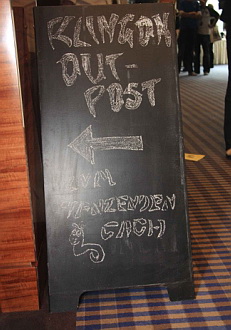 KLINGON
OUT-
POST
ZUM
TANZENDEN
GAGH